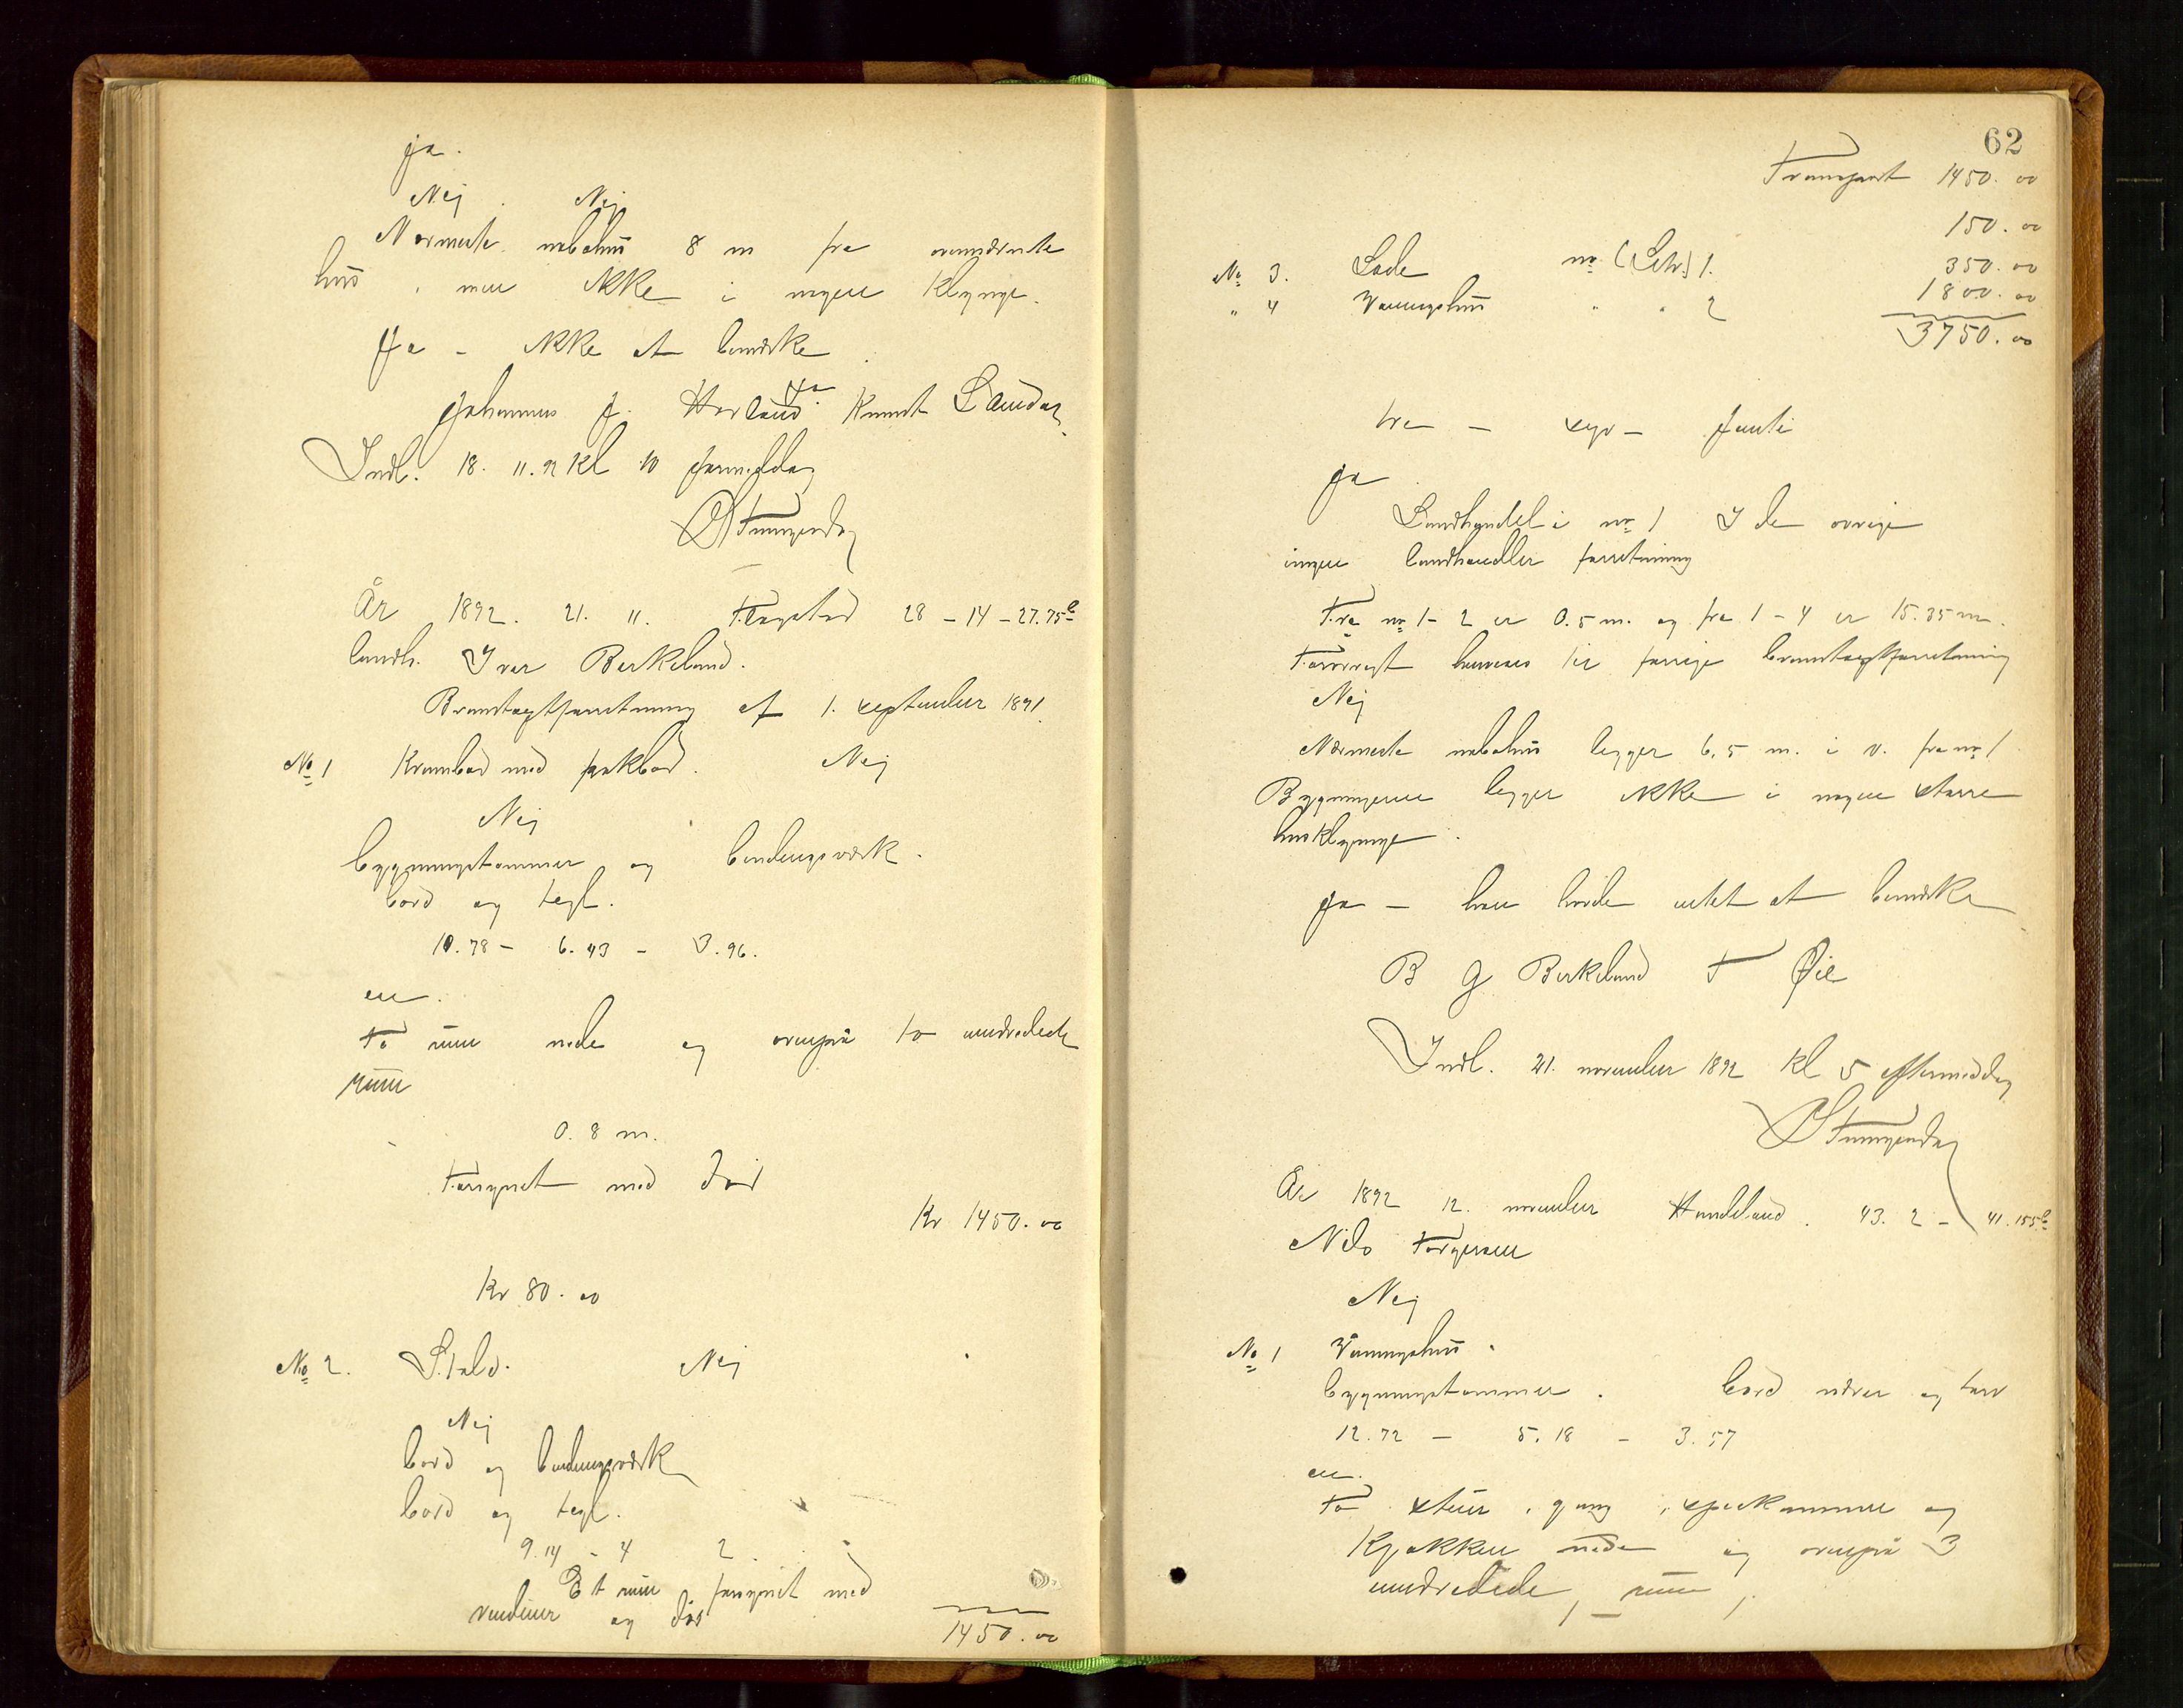 ja.
Nej. Nej
Nærmeste nabohus 8 m fra ovennævnte
hus, men ikke i nogen klynge.
Ja - ikke at bemærke
Johannes J. Havland Knut Lamdar
Indl. 18. 11. 92 kl 10 formiddag
År 1892. 21. 11. 28 - 14 - 27.75
landh. Iver Berkeland.
Brandtagtforretning af 1. september 1891
No 1 Krambod med pakbod. Nej
Nej
bygningstømmer og bindingsværk.
bord og tegl.
10.78 - 6.43 - 3.96.
en.
To rum nede og ovenpå to uindredede
rum
0.8 m.
Forsynet med dør
Kr 1450.00
Kr 80.00
No 2. Stald. Nej
Nej
bord og bindingsværk
bord og tegl.
9.14 - 4 2.
Et rum forsynet med
vinduer og dør
1450.00
62
Transport 1450.00
150.00
No 3. Lade no (Litr.) 1. 350.00
" 4 Vaaningshus " " 2 1800.00
3750.00
tre - syv - femti
ja
Landhandel i no 1 I de øvrige
ingen landhandler forretning
Fra no 1 - 2 er 0.5 m. og fra 1 - 4 er 15.35 m.
Forøvrigt henvises til forrige brandtagtforretning
Nej
Nærmeste nabohus ligger 6,5 m. i v. fra no 1
Bygningerne ligger ikke i nogen større
husklynge.
ja - han havde intet at bemærke
B G Berkeland T Øie
Indl. 21. november 1892 kl 5 eftermiddag
År 1892 12. november Hundeland. 43. 2 - 41.155
Nils Torgersen
Nej
No 1 Vaaningshus.
bygningstømmer. bord næver og torv
12.72 - 5.18 - 3.57
en.
To stuer, gang, spiskammer og
kjøkken nede og ovenpå 3
uindredede rum,